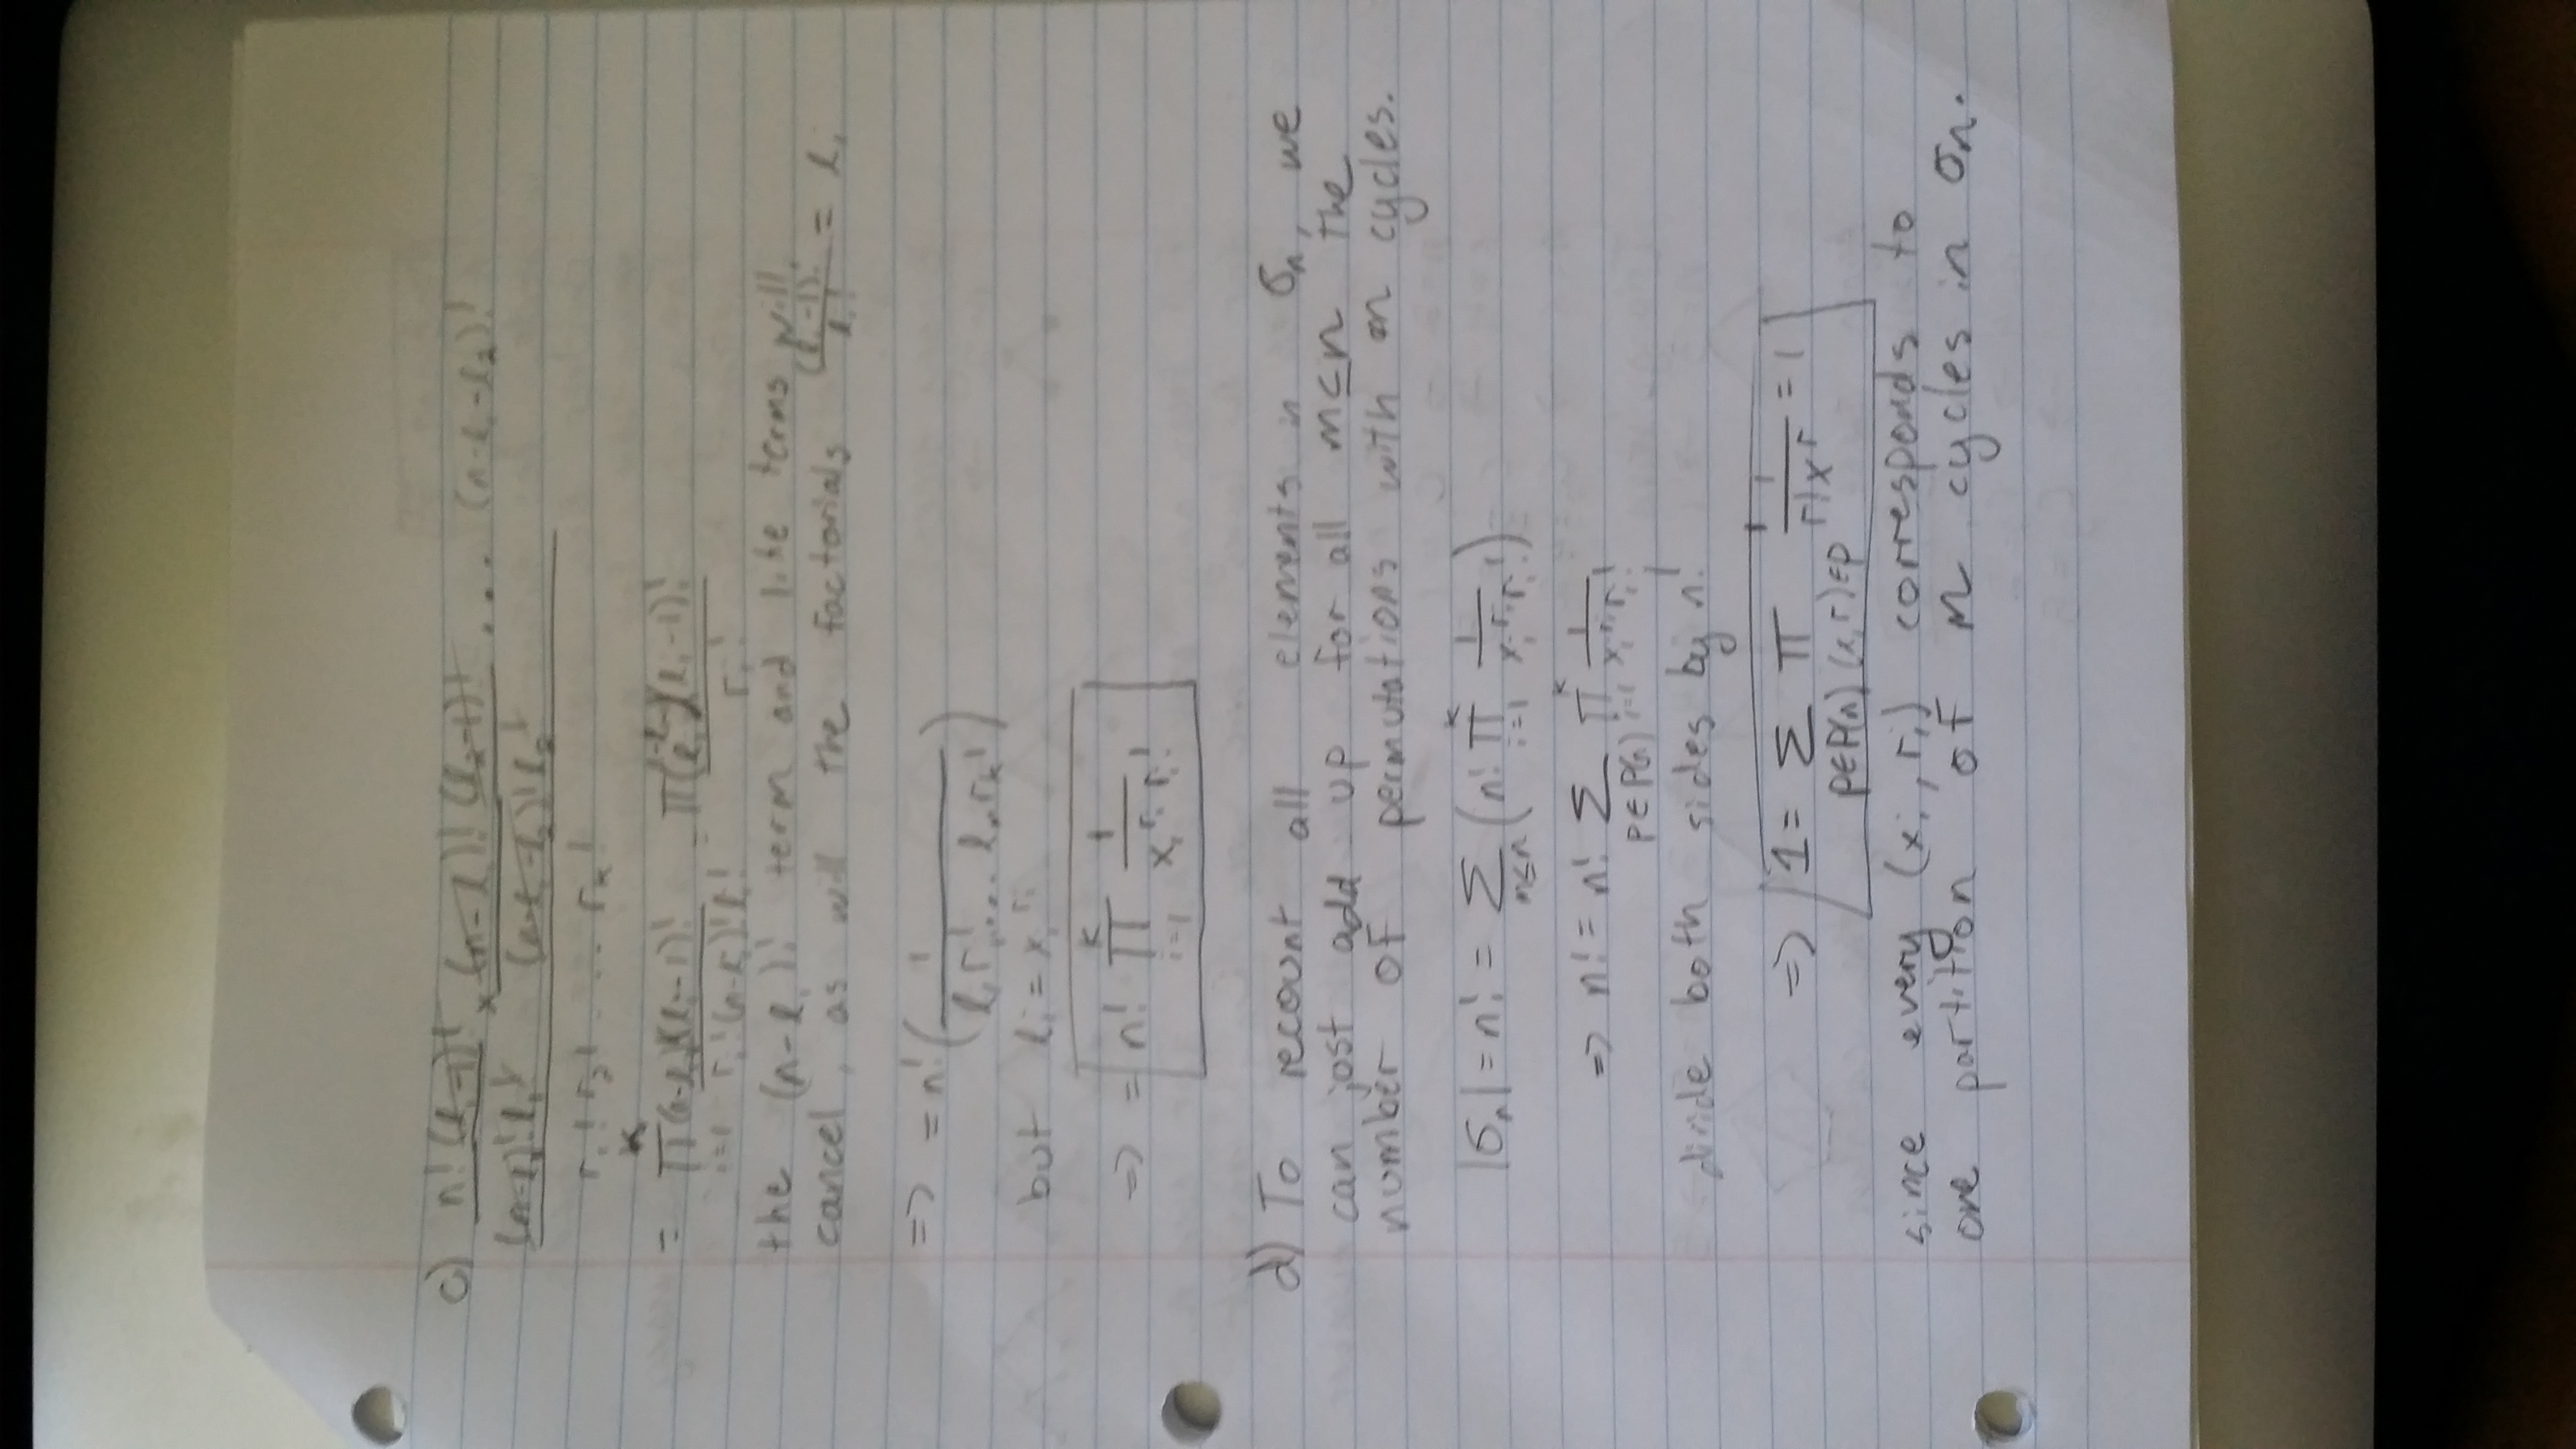 c) n! (l₁-1)! × (n-l₁)! (l₂-1)! ... (n-l₁-l₂)!
(n-l₁)! l₁! (n-l₁-l₂)! l₂!
r₁! r₂! ... rₖ!
= k ∏ i=1 (l_i-1)! / r_i! (n-l_i)! l_i! = ∏ (l_i-1)! / r_i!
the (n-l₁)! term and like terms will
cancel, as will the factorials (l_i-1)! / l_i! = l_i
=> = n! (1 / l₁r₁! ... lₙrₖ!)
but l_i = x_i^{r_i}
=> = n! k ∏ i=1 1 / x_i^{r_i} r_i!
d) To recount all elements in σₙ, we
can just add up for all m≤n the
number of permutations with m cycles.
|σₙ| = n! = Σ m≤n (n! k ∏ i=1 1 / x_i^{r_i} r_i!)
=> n! = n! Σ p∈P(n) k ∏ i=1 1 / x_i^{r_i} r_i!
divide both sides by n!
=> 1 = Σ p∈P(n) ∏ (x,r)∈p 1 / r! x^r = 1
since every (x_i, r_i) corresponds to
one partition of m cycles in σₙ.